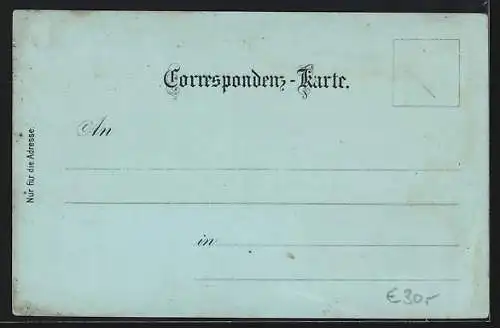 Correspondenz-Karte.
An
in
Nur für die Adresse.
€30,-